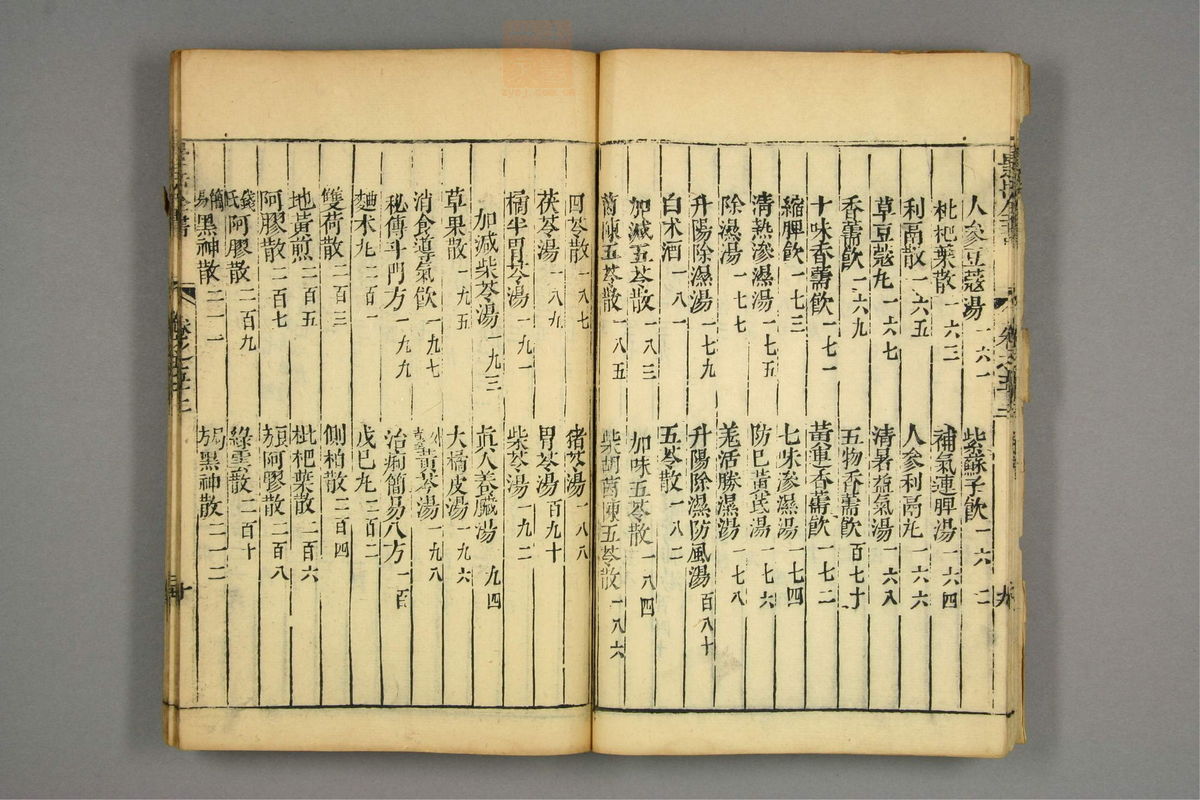 人參豆蔻湯一六一 紫蘇子飲一六二
枇杷葉散一六三 補氣運脾湯一六四
利膈散一六五 人參利膈丸一六六
草豆蔻丸一六七 清暑益氣湯一六八
香薷飲一六九 五物香薷飲百七十
十味香薷飲一七一 黃連香薷飲一七二
縮脾飲一七三 七味滲濕湯一七四
清熱滲濕湯一七五 防已黃芪湯一七六
除濕湯一七七 羌活勝濕湯一七八
升陽除濕湯一七九 升陽除濕防風湯百八十
白术酒一八一 五苓散一八二
加減五苓散一八三 加味五苓散一八四
茵陳五苓散一八五 柴胡茵陳五苓散一八六
四苓散一八七 猪苓湯一八八
茯苓湯一八九 胃苓湯百九十
橘半胃苓湯一九一 柴苓湯一九二
加減柴苓湯一九三 眞人養臟湯一九四
草果散一九五 大橘皮湯一九六
消食導氣飲一九七 黃芩湯一九八
秘傳斗門方一九九 治痢簡易八方二百
麯术丸二百一 戊巳丸二百二
雙荷散二百三 側柏散二百四
地黃煎二百五 枇杷葉散二百六
阿膠散二百七 阿膠散二百八
錢氏阿膠散二百九 綠雲散二百十
簡易黑神散二一一 黑神散二一二